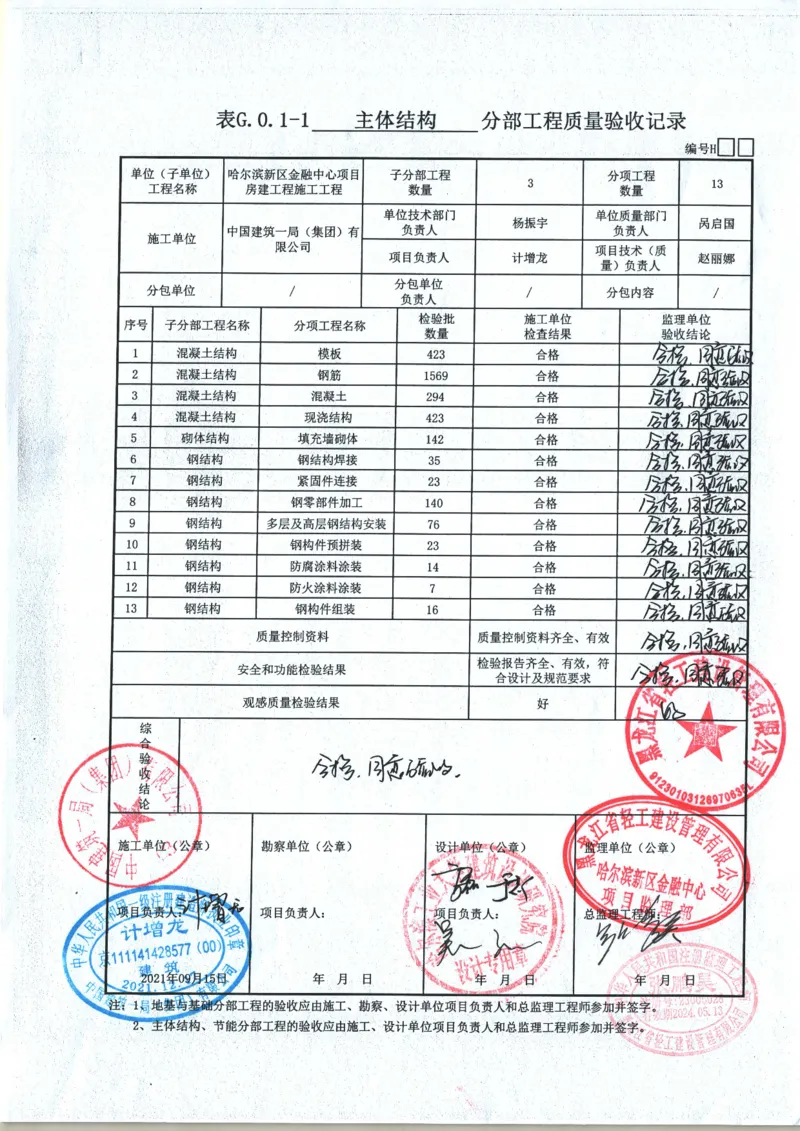 表G.0.1-1 主体结构 分部工程质量验收记录
编号H
单位（子单位）工程名称 哈尔滨新区金融中心项目房建工程施工工程 子分部工程数量 3 分项工程数量 13
施工单位 中国建筑一局（集团）有限公司 单位技术部门负责人 杨振宇 单位质量部门负责人 呙启国
项目负责人 计增龙 项目技术（质量）负责人 赵丽娜
分包单位 / 分包单位负责人 / 分包内容 /
序号 子分部工程名称 分项工程名称 检验批数量 施工单位检查结果 监理单位验收结论
1 混凝土结构 模板 423 合格 合格，同意验收
2 混凝土结构 钢筋 1569 合格 合格，同意验收
3 混凝土结构 混凝土 294 合格 合格，同意验收
4 混凝土结构 现浇结构 423 合格 合格，同意验收
5 砌体结构 填充墙砌体 142 合格 合格，同意验收
6 钢结构 钢结构焊接 35 合格 合格，同意验收
7 钢结构 紧固件连接 23 合格 合格，同意验收
8 钢结构 钢零部件加工 140 合格 合格，同意验收
9 钢结构 多层及高层钢结构安装 76 合格 合格，同意验收
10 钢结构 钢构件预拼装 23 合格 合格，同意验收
11 钢结构 防腐涂料涂装 14 合格 合格，同意验收
12 钢结构 防火涂料涂装 7 合格 合格，同意验收
13 钢结构 钢构件组装 16 合格 合格，同意验收
质量控制资料 质量控制资料齐全、有效 合格，同意验收
安全和功能检验结果 检验报告齐全、有效，符合设计及规范要求 合格，同意验收
观感质量检验结果 好 好
综合验收结论 合格，同意验收。
黑龙江省轻工建设管理有限公司
912301031269706
施工单位（公章） 勘察单位（公章） 设计单位（公章） 监理单位（公章）
黑龙江省轻工建设管理有限公司
哈尔滨新区金融中心
项目监理部
项目负责人：计增龙 项目负责人： 项目负责人： 总监理工程师：
中华人民共和国一级注册建造师执业印章
计增龙
京111141428577（00）
建筑
设计专用章
2021年09月15日 年 月 日 年 月 日
张鹏昊
2024.05.13
黑龙江省轻工建设管理有限公司
注：1、地基与基础分部工程的验收应由施工、勘察、设计单位项目负责人和总监理工程师参加并签字。
2、主体结构、节能分部工程的验收应由施工、设计单位项目负责人和总监理工程师参加并签字。